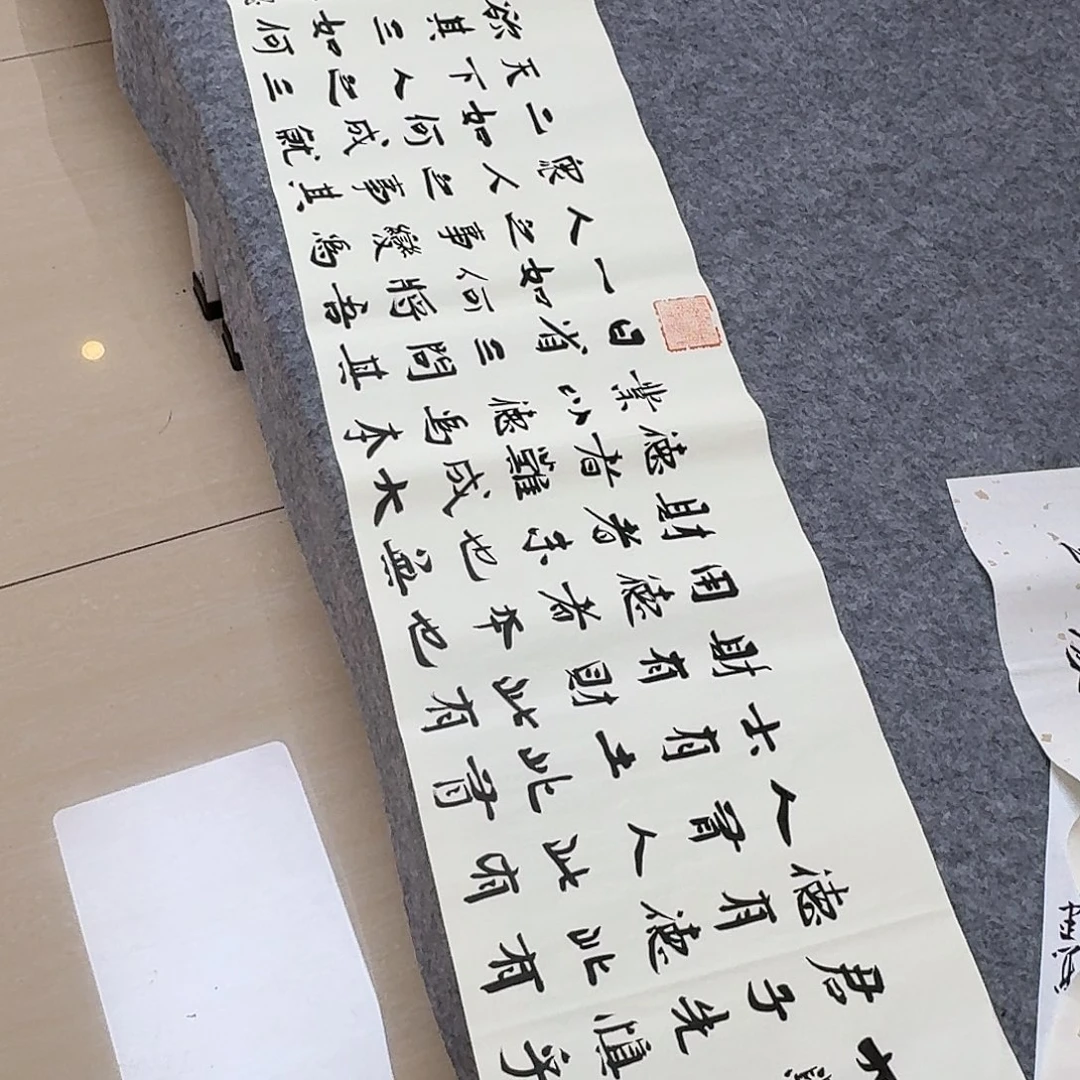 大
君子先慎乎
德有德此有
人有人此有
土有土此有
財有財此有
用德者本也
財者末也無
德者難成大
業以德為本
日省三問其
一如何將吾
人之事變為
衆人之事其
二如何成就
天下人之三
欲其三如何